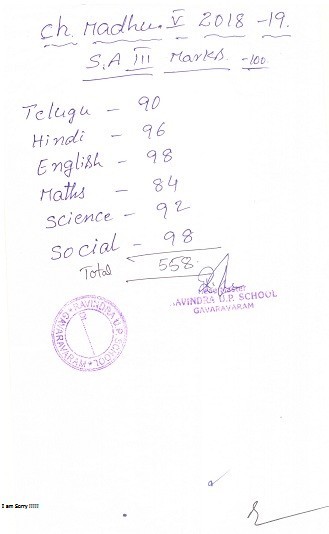 Ch. Madhu. V 2018 -19.
S.A III Marks. -100.
Telugu - 90
Hindi - 96
English - 98
Maths - 84
Science - 92
Social - 98
Total 558.
RAVINDRA U.P. SCHOOL
GAVARAVARAM
RAVINDRA U.P. SCHOOL
GAVARAVARAM
I am Sorry !!!!!